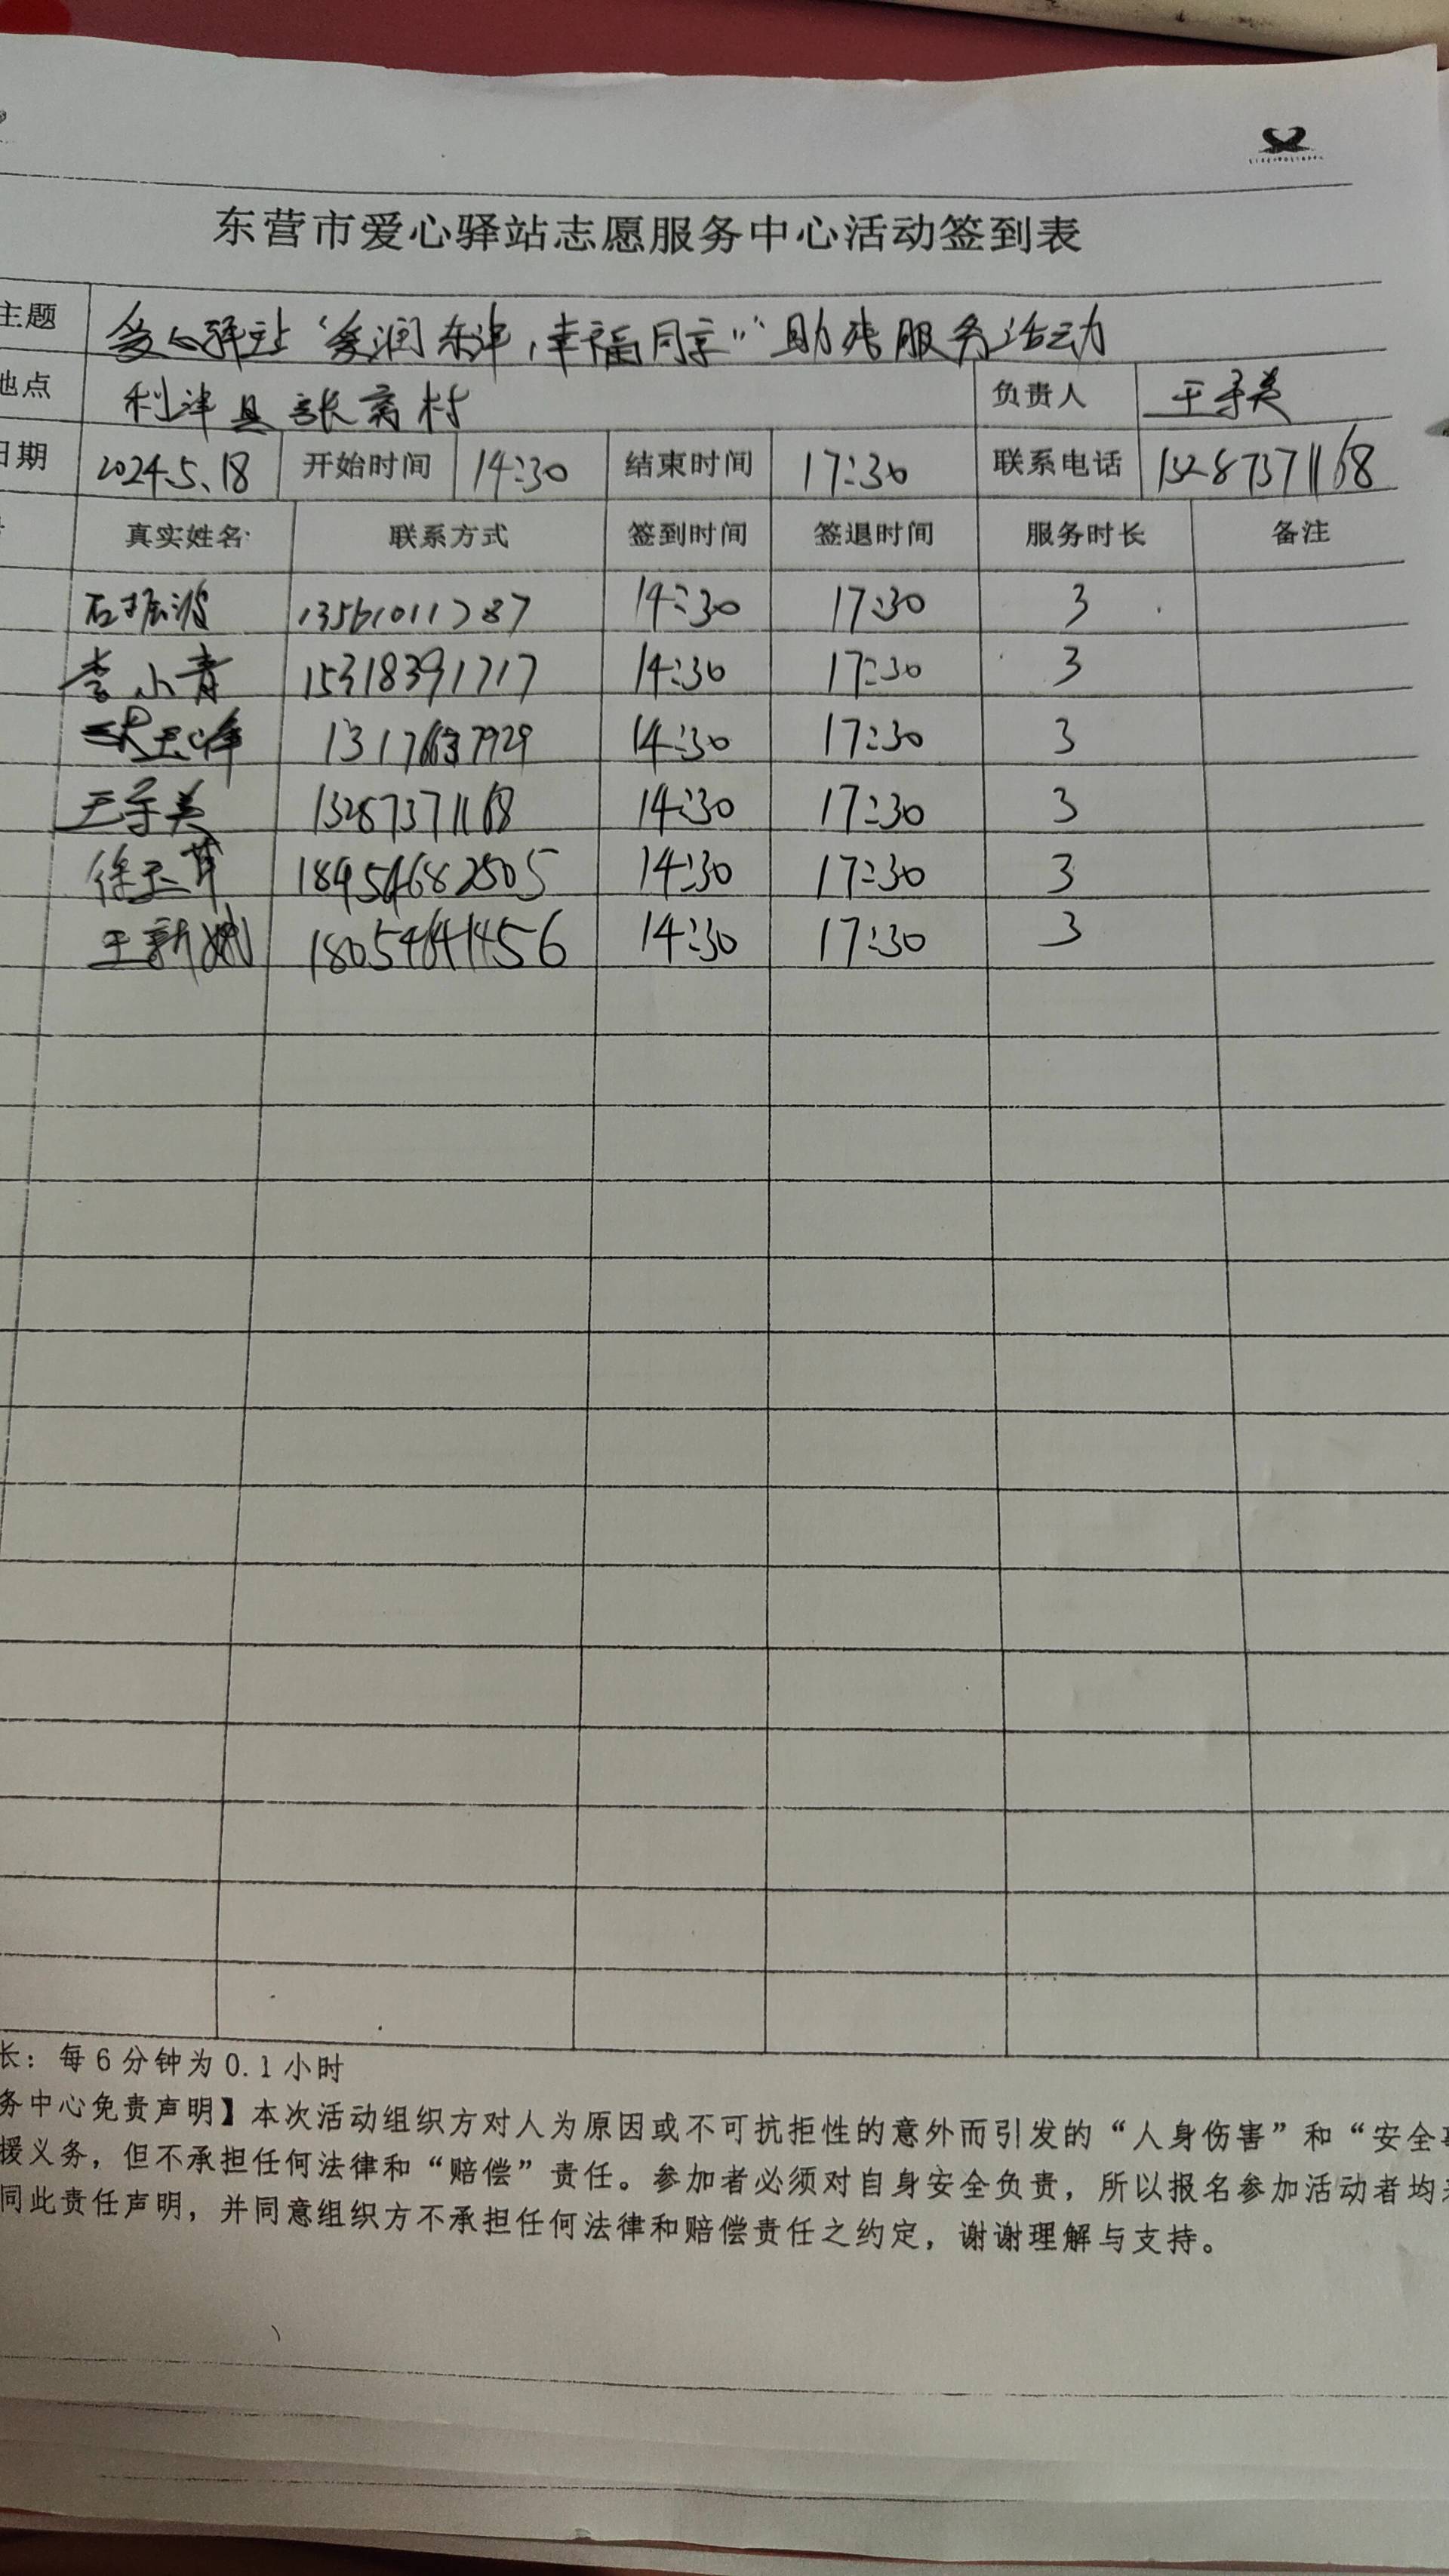 东营市爱心驿站志愿服务中心活动签到表
主题 爱心驿站“爱润东津,幸福同享”助残服务活动
地点 利津县张窝村 负责人 王守美
日期 2024.5.18 开始时间 14:30 结束时间 17:30 联系电话 13287371168
真实姓名 联系方式 签到时间 签退时间 服务时长 备注
石振波 13561011787 14:30 17:30 3
李小青 15318391717 14:30 17:30 3
14:30 17:30 3
王守美 13287371168 14:30 17:30 3
徐玉苹 18954682505 14:30 17:30 3
王新 14:30 17:30 3
长:每6分钟为0.1小时
务中心免责声明】本次活动组织方对人为原因或不可抗拒性的意外而引发的“人身伤害”和“安全
援义务,但不承担任何法律和“赔偿”责任。参加者必须对自身安全负责,所以报名参加活动者均
同此责任声明,并同意组织方不承担任何法律和赔偿责任之约定,谢谢理解与支持。